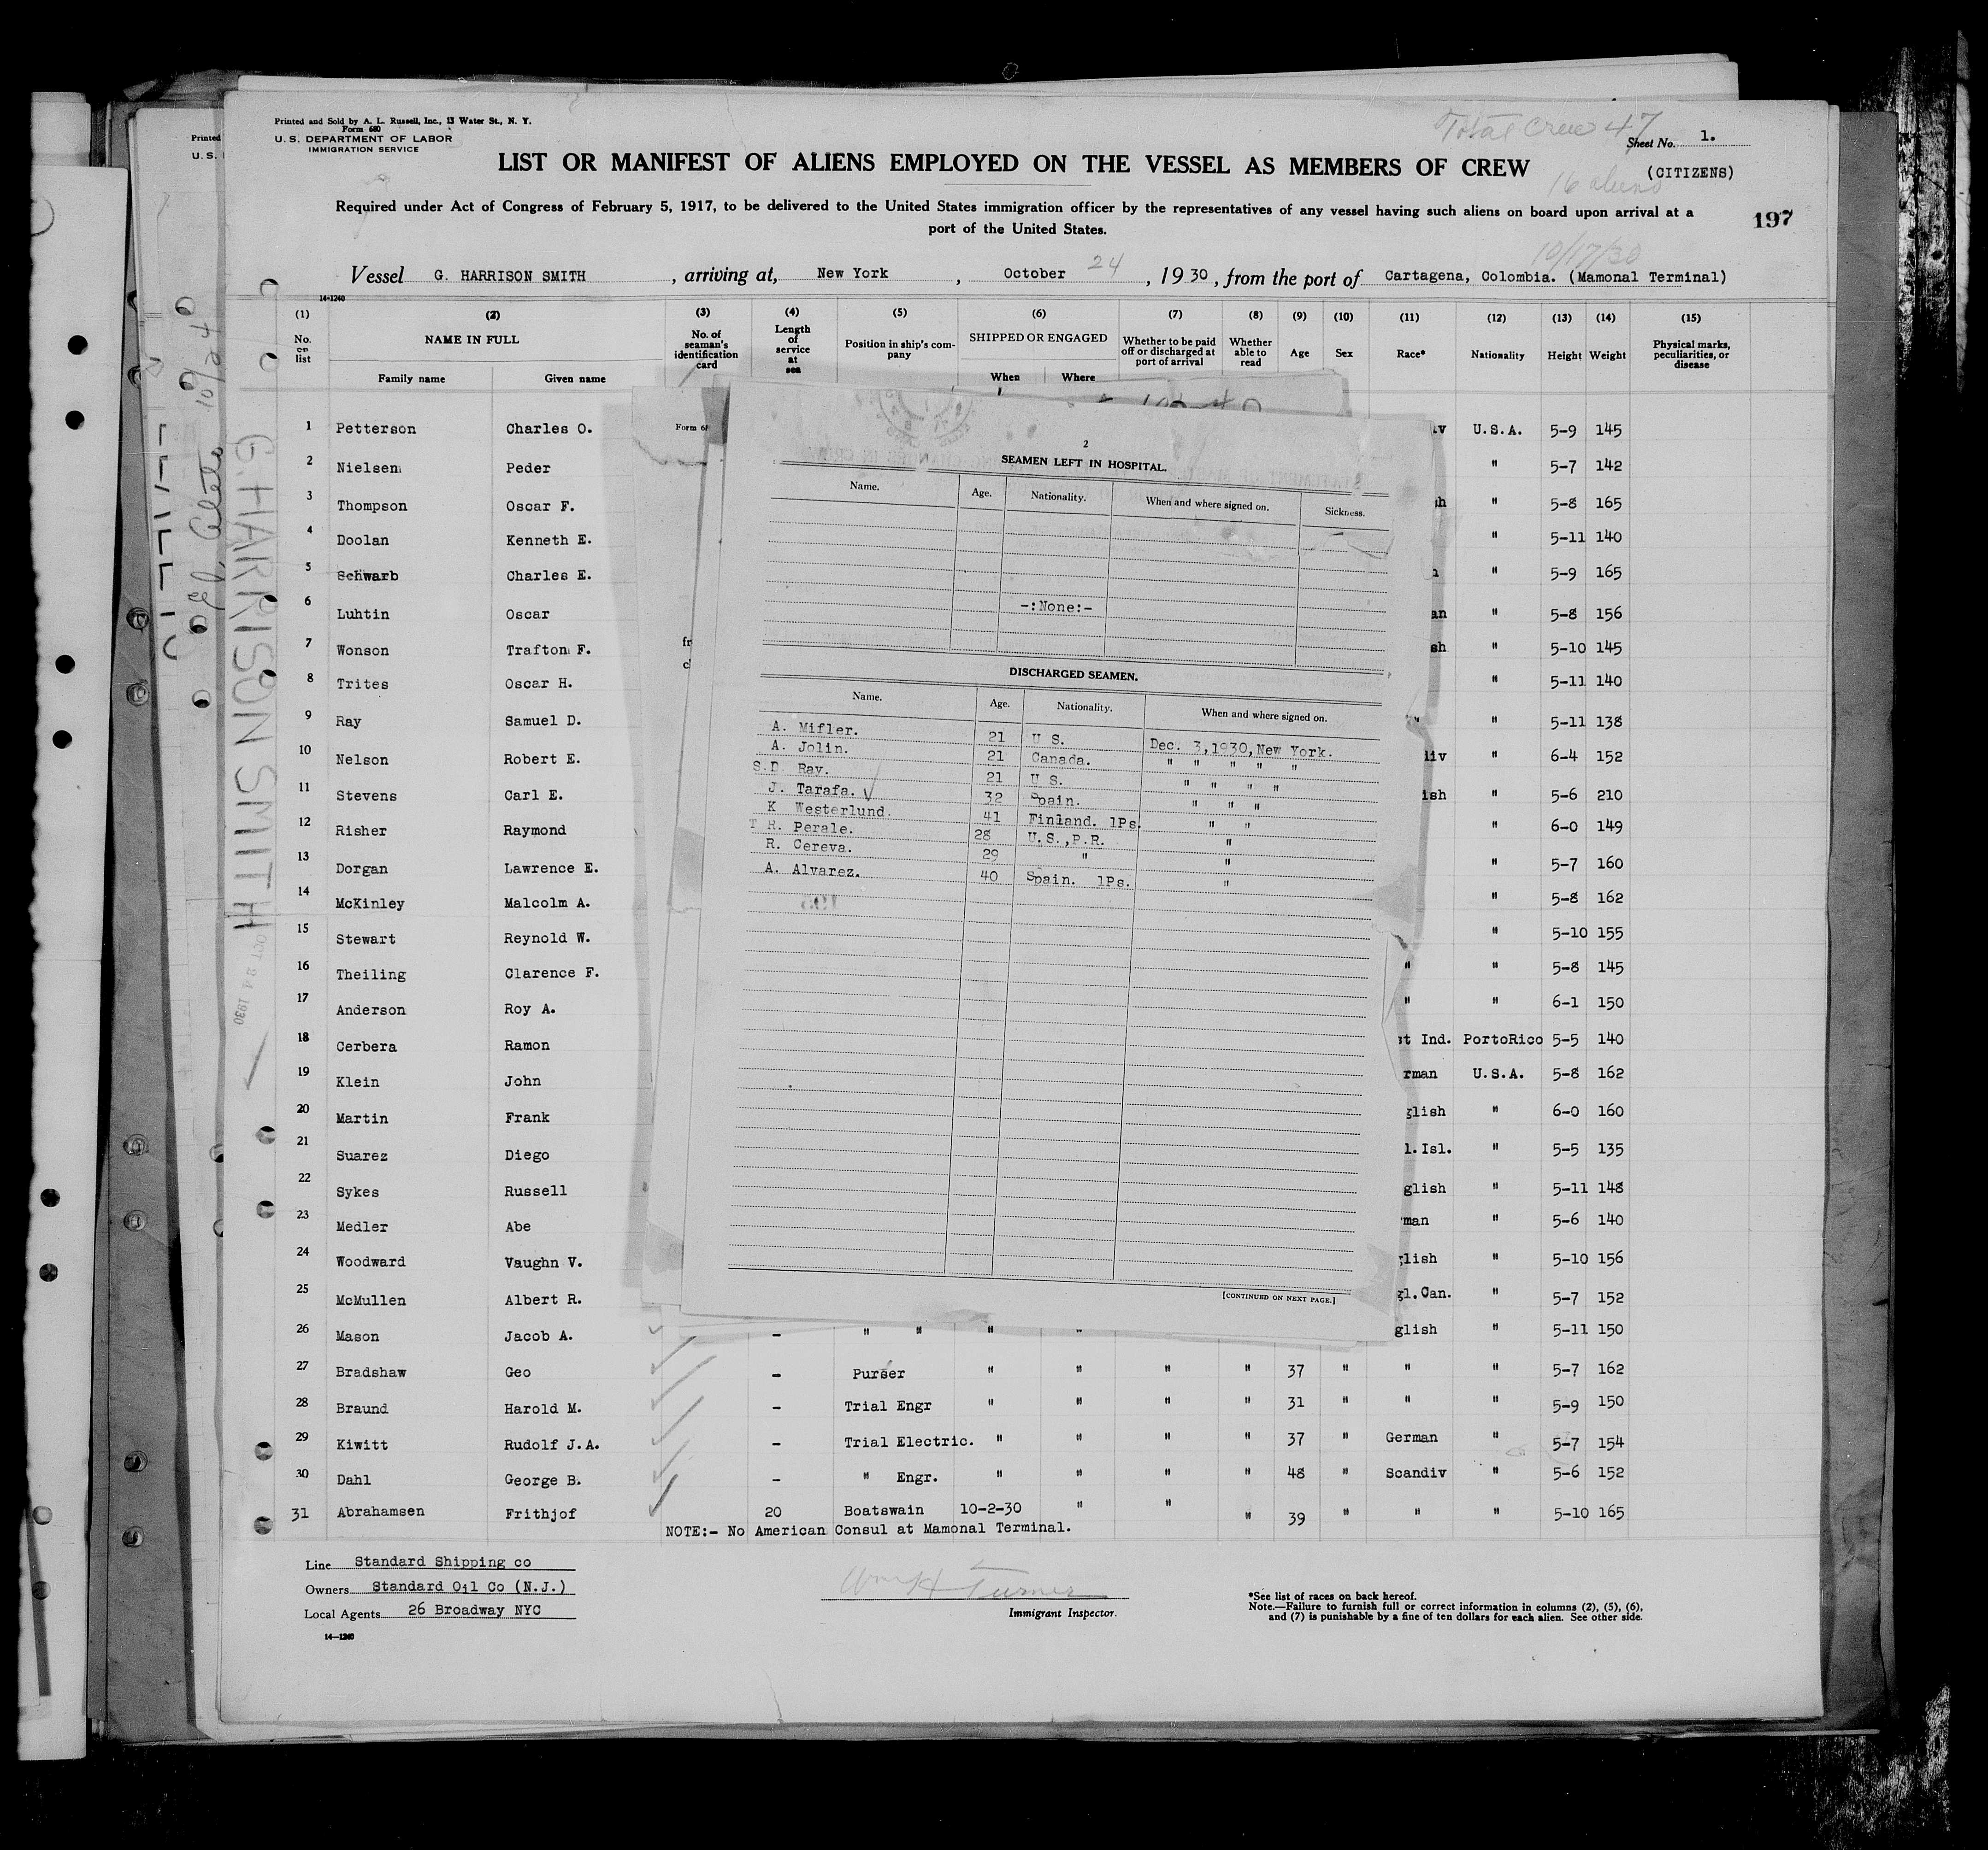 Printed and Sold by A. L. Russell, Inc., 13 Water St., N. Y.
Form 680
U. S. DEPARTMENT OF LABOR
IMMIGRATION SERVICE
Total Crew 47
Sheet No. 1.
LIST OR MANIFEST OF ALIENS EMPLOYED ON THE VESSEL AS MEMBERS OF CREW
(CITIZENS)
16 aliens
Required under Act of Congress of February 5, 1917, to be delivered to the United States immigration officer by the representatives of any vessel having such aliens on board upon arrival at a
port of the United States.
197
10/17/30
Vessel G. HARRISON SMITH, arriving at, New York, October 24, 1930, from the port of Cartagena, Colombia. (Mamonal Terminal)
14-1240
(1) No. on list
(2) NAME IN FULL Family name Given name
(3) No. of seaman's identification card
(4) Length of service at sea
(5) Position in ship's company
(6) SHIPPED OR ENGAGED When Where
(7) Whether to be paid off or discharged at port of arrival
(8) Whether able to read
(9) Age
(10) Sex
(11) Race*
(12) Nationality
(13) Height
(14) Weight
(15) Physical marks, peculiarities, or disease
1 Petterson Charles O. iv U.S.A. 5-9 145
2 Nielsen Peder " 5-7 142
3 Thompson Oscar F. sh " 5-8 165
4 Doolan Kenneth E. " 5-11 140
5 Schwarb Charles E. n " 5-9 165
6 Luhtin Oscar an " 5-8 156
7 Wonson Trafton F. sh " 5-10 145
8 Trites Oscar H. " 5-11 140
9 Ray Samuel D. " " 5-11 138
10 Nelson Robert E. div " 6-4 152
11 Stevens Carl E. ish " 5-6 210
12 Risher Raymond " 6-0 149
13 Dorgan Lawrence E. " 5-7 160
14 McKinley Malcolm A. " 5-8 162
15 Stewart Reynold W. " 5-10 155
16 Theiling Clarence F. " " 5-8 145
17 Anderson Roy A. " " 6-1 150
18 Cerbera Ramon st Ind. PortoRico 5-5 140
19 Klein John rman U.S.A. 5-8 162
20 Martin Frank glish " 6-0 160
21 Suarez Diego l.Isl. " 5-5 135
22 Sykes Russell glish " 5-11 148
23 Medler Abe rman " 5-6 140
24 Woodward Vaughn V. glish " 5-10 156
25 McMullen Albert R. gl.Can. " 5-7 152
26 Mason Jacob A. - " " " " glish " 5-11 150
27 Bradshaw Geo - Purser " " " " 37 " " " 5-7 162
28 Braund Harold M. - Trial Engr " " " " 31 " " " 5-9 150
29 Kiwitt Rudolf J.A. - Trial Electric. " " " " 37 " German " 5-7 154
30 Dahl George B. - " Engr. " " " " 48 " Scandiv " 5-6 152
31 Abrahamsen Frithjof 20 Boatswain 10-2-30 " " " 39 " " " 5-10 165
NOTE:- No American Consul at Mamonal Terminal.
Line Standard Shipping co
Owners Standard Oil Co (N.J.)
Local Agents 26 Broadway NYC
14—1240
Wm H Turner
Immigrant Inspector.
*See list of races on back hereof.
Note.—Failure to furnish full or correct information in columns (2), (5), (6),
and (7) is punishable by a fine of ten dollars for each alien. See other side.
2
SEAMEN LEFT IN HOSPITAL.
Name. Age. Nationality. When and where signed on. Sickness.
-:None:-
DISCHARGED SEAMEN.
Name. Age. Nationality. When and where signed on.
A. Mifler. 21 U S. Dec. 3,1930,New York.
A. Jolin. 21 Canada. " " " " "
S.D. Ray. 21 U S. " " " "
J. Tarafa. 32 Spain. " " "
K Westerlund. 41 Finland. 1Ps. " "
T R. Perale. 28 U.S.,P.R. "
R. Cereva. 29 " "
A. Alvarez. 40 Spain. 1Ps. "
[CONTINUED ON NEXT PAGE.]
G. HARRISON SMITH
OCT 24 1930
Printed
U. S.
Form 68